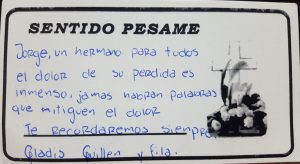 SENTIDO PESAME
Jorge, un hermano para todos
el dolor de su perdida es
inmenso, jamas habran palabras
que mitiguen el dolor
Te recordaremos siempre.
Gladis Guillen y fila.